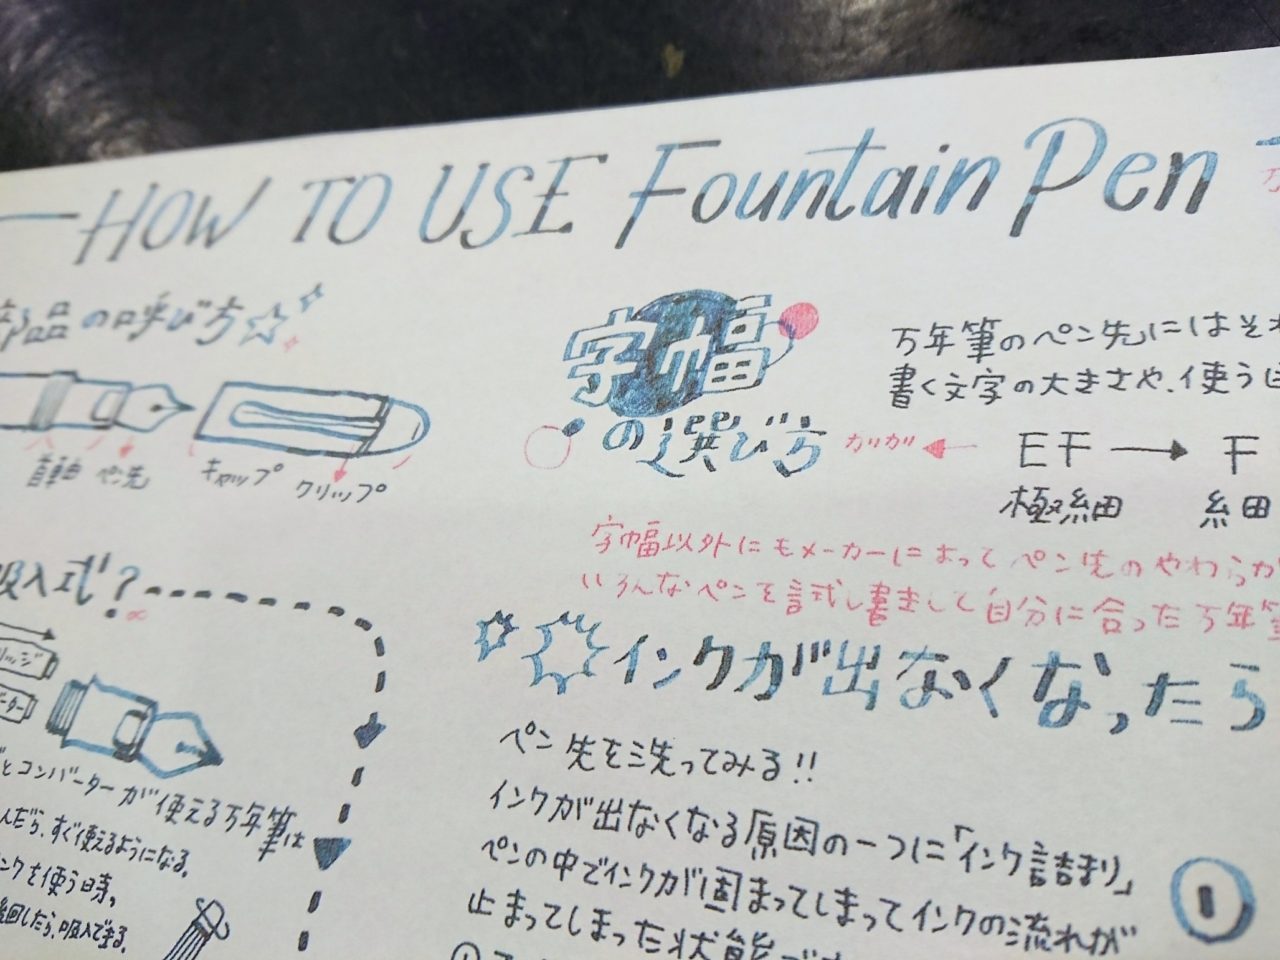 HOW TO USE Fountain Pen
部品の呼び方
首軸 ペン先 キャップ クリップ
字幅
の選び方
万年筆のペン先にはそれ
書く文字の大きさや、使う
カリカリ
EF → F
極細 細
字幅以外にもメーカーによってペン先のやわらか
いろんなペンを試し書きして自分に合った万年筆
吸入式?
リッジ
ーター
とコンバーターが使える万年筆は
んだら、すぐ使えるようになる。
ンクを使う時、
回したら、吸入できる。
インクが出なくなったら
ペン先を洗ってみる!!
インクが出なくなる原因の一つに「インク詰まり」
ペンの中でインクが固まってしまってインクの流れが
止まってしまった状態で
①
1